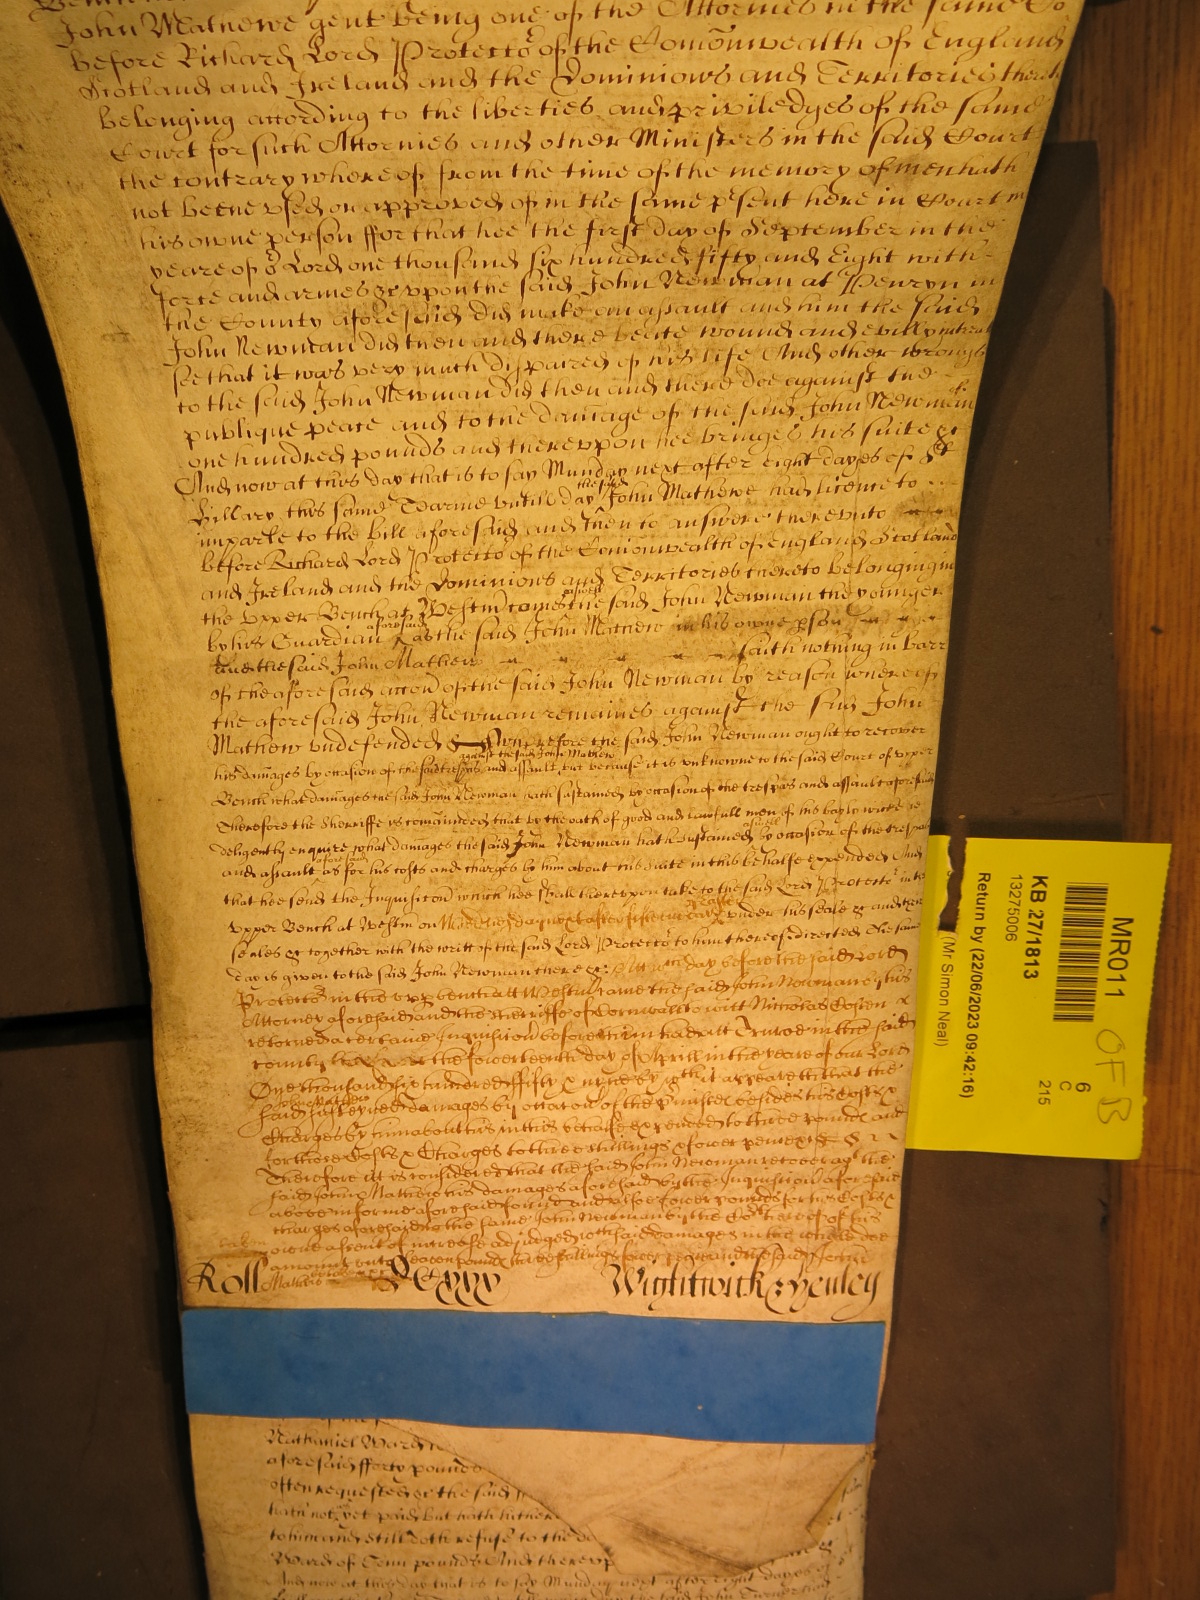 John Mathewe gent being one of the Attornies in the same Co
before Richard Lord Protector of the Comonwealth of England
Scotland and Ireland and the Dominions and Territories thereto
belonging according to the liberties and priviledges of the same
Court for such Attornies and other Ministers in the said Court
the contrary whereof from the time of the memory of men hath
not beene used or approved of in the same psent here in Court in
his owne person ffor that hee the first day of September in the
yeare of or Lord one thousand six hundred fifty and Eight with
force and armes &c vppon the said John Newman at Penryn in
the County aforesaid did make an assault and him the said
John Newman did then and there beate wound and evilly intreat
soe that it was very much dispaired of his life And other wrongs
to the said John Newman did then and there doe against the
publique peace and to the damage of the said John Newman of
one hundred pounds and therevpon hee bringes his suite &c
And now at this day that is to say Munday next after eight dayes of St
Hillary this same Tearme vntill day the said John Mathewe had licence to
imparle to the bill aforesaid and then to answere therevnto
before Richard Lord Protector of the Comonwealth of England Scotland
and Ireland and the Dominions and Territories thereto belonging in
the vpper Bench at Westm comes aswell the said John Newman the younger
by his Guardian aforesaid as the said John Mathew in his owne pson
And the said John Mathew saith nothing in barr
of the aforesaid accon of the said John Newman by reason whereof
the aforesaid John Newman remaines against the said John
Mathew vndefended & Wherefore the said John Newman ought to recover
against the said John Mathew
his damages by occasion of the said trespas and assault but because it is vnknowne to the said Court of vpper
Bench what damages the said John Newman hath sustained by occasion of the trespas and assault aforesaid
Therefore the Sherriffe is comanded that by the oath of good and lawfull men of his baylywicke he
deligently enquire what damages the said John Newman hath sustained aswell by occasion of the trespas
and assault aforesaid as for his costs and charges by him about his suite in this behalfe expended And
that hee send the Inquisicon which hee shall therevpon take to the said Lord Protector in the
vpper Bench at Westm on next after vnder his seale &c and the
seales &c together with the writt of the said Lord Protector to him thereof directed The same
day is given to the said John Newman there &c At wch day before the said Lord
Protector in the vpp bench att Westm came the said John Newman by his
Attorney aforesaid and the Sherriffe of Cornwall to witt Nicholas Cossen
retorned a certaine Inquisicon before him had att Truroe in the said
county the fowerteenth day of Aprill in the yeare of our Lord
One thousand six hundred fifty & nyne by wch it appeares that the
said John Mathew damages by occasion of the p misses besides his Costs &
Charges by him about his in this behalfe expended to three pounds and
for those Costs & Charges to three shillings & fower pence
Therefore it is considered that the said John Newman recover agt the
said John Mathew his damages aforesaid by the Inquisicon aforesaid
above in forme aforesaid found and alsoe fower pounds for his Costs &
charges aforesaid to the same John Newman by the Cort hereof of his
owne assent of increase adjudged wch said damages in the whole doe
amount vnto seaven pounds three shillings fower pence and the said John
Mathew
Roll Cxxx Wightwick : Henley
Nathaniel Ward
aforesaid fforty pounds
often requested &c the said
hath not yet paid but hath hitherto
to him and still doth refuse to the
Ward of Tenn pounds And therevp
And now at this day that is to say Munday next after eight dayes of
MR011
6
C
215
KB 27/1813
13275006
Return by (22/06/2023 09:42:16)
(Mr Simon Neal)
OFB